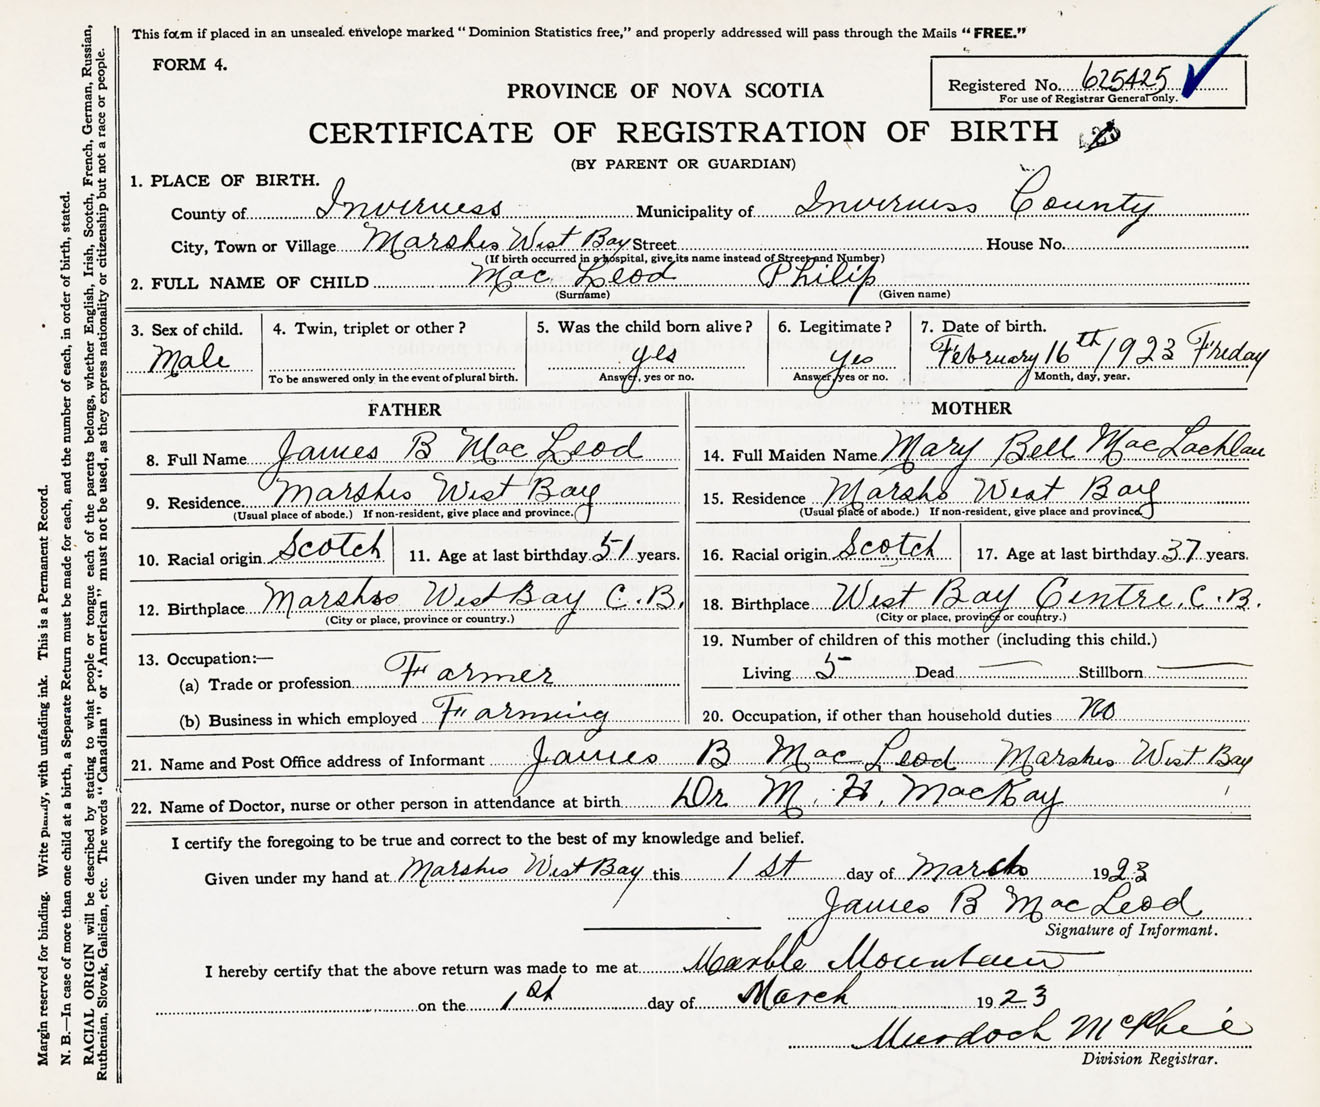 This form if placed in an unsealed envelope marked "Dominion Statistics free," and properly addressed will pass through the Mails "FREE."
FORM 4.
Registered No. 625425
For use of Registrar General only.
PROVINCE OF NOVA SCOTIA
CERTIFICATE OF REGISTRATION OF BIRTH
(BY PARENT OR GUARDIAN)
1. PLACE OF BIRTH.
County of Inverness Municipality of Inverness County
City, Town or Village Marshes West Bay Street House No.
(If birth occurred in a hospital, give its name instead of Street and Number)
2. FULL NAME OF CHILD Mac Leod Philip
(Surname) (Given name)
3. Sex of child. Male
4. Twin, triplet or other?
To be answered only in the event of plural birth.
5. Was the child born alive? yes
Answer, yes or no.
6. Legitimate? yes
Answer, yes or no.
7. Date of birth. February 16th/1923 Friday
Month, day, year.
FATHER
8. Full Name James B Mac Leod
9. Residence Marshes West Bay
(Usual place of abode.) If non-resident, give place and province.
10. Racial origin Scotch 11. Age at last birthday 51 years.
12. Birthplace Marshes West Bay C.B.
(City or place, province or country.)
13. Occupation:—
(a) Trade or profession Farmer
(b) Business in which employed Farming
MOTHER
14. Full Maiden Name Mary Bell MacLachlan
15. Residence Marshs West Bay
(Usual place of abode.) If non-resident, give place and province
16. Racial origin Scotch 17. Age at last birthday 37 years.
18. Birthplace West Bay Centre, C.B.
(City or place, province or country.)
19. Number of children of this mother (including this child.)
Living 5 Dead — Stillborn —
20. Occupation, if other than household duties no
21. Name and Post Office address of Informant James B Mac Leod Marshes West Bay
22. Name of Doctor, nurse or other person in attendance at birth Dr M. H. MacKay
I certify the foregoing to be true and correct to the best of my knowledge and belief.
Given under my hand at Marshes West Bay this 1st day of March 1923
James B Mac Leod
Signature of Informant.
I hereby certify that the above return was made to me at Marble Mountain
on the 1st day of March 1923
Murdoch McPhie
Division Registrar.
Margin reserved for binding. Write plainly, with unfading ink. This is a Permanent Record.
N. B.—In case of more than one child at a birth, a Separate Return must be made for each, and the number of each, in order of birth, stated.
RACIAL ORIGIN will be described by stating to what people or tongue each of the parents belongs, whether English, Irish, Scotch, French, German, Russian,
Ruthenian, Slovak, Galician, etc. The words "Canadian" or "American" must not be used, as they express nationality or citizenship but not a race or people.